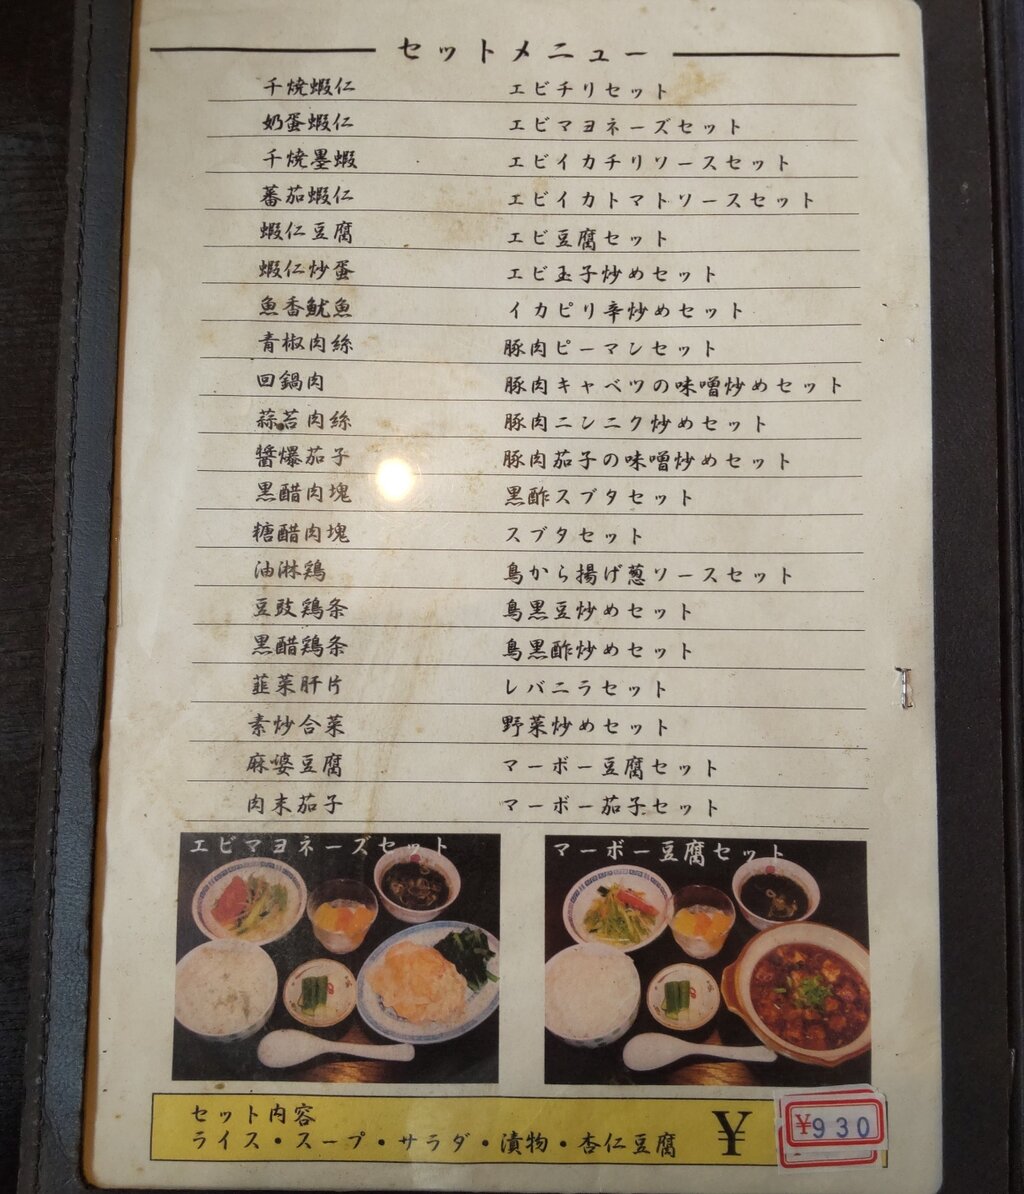 セットメニュー
千焼蝦仁 エビチリセット
奶蛋蝦仁 エビマヨネーズセット
千焼墨蝦 エビイカチリソースセット
蕃茄蝦仁 エビイカトマトソースセット
蝦仁豆腐 エビ豆腐セット
蝦仁炒蛋 エビ玉子炒めセット
魚香魷魚 イカピリ辛炒めセット
青椒肉絲 豚肉ピーマンセット
回鍋肉 豚肉キャベツの味噌炒めセット
蒜苔肉絲 豚肉ニンニク炒めセット
醬爆茄子 豚肉茄子の味噌炒めセット
黒醋肉塊 黒酢スブタセット
糖醋肉塊 スブタセット
油淋鶏 鳥から揚げ葱ソースセット
豆豉鶏条 鳥黒豆炒めセット
黒醋鶏条 鳥黒酢炒めセット
韮菜肝片 レバニラセット
素炒合菜 野菜炒めセット
麻婆豆腐 マーボー豆腐セット
肉末茄子 マーボー茄子セット
エビマヨネーズセット
マーボー豆腐セット
セット内容
ライス・スープ・サラダ・漬物・杏仁豆腐
¥ ¥930